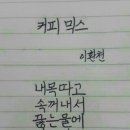 커피 믹스
이환천
내목따고
속꺼내서
끓는물에